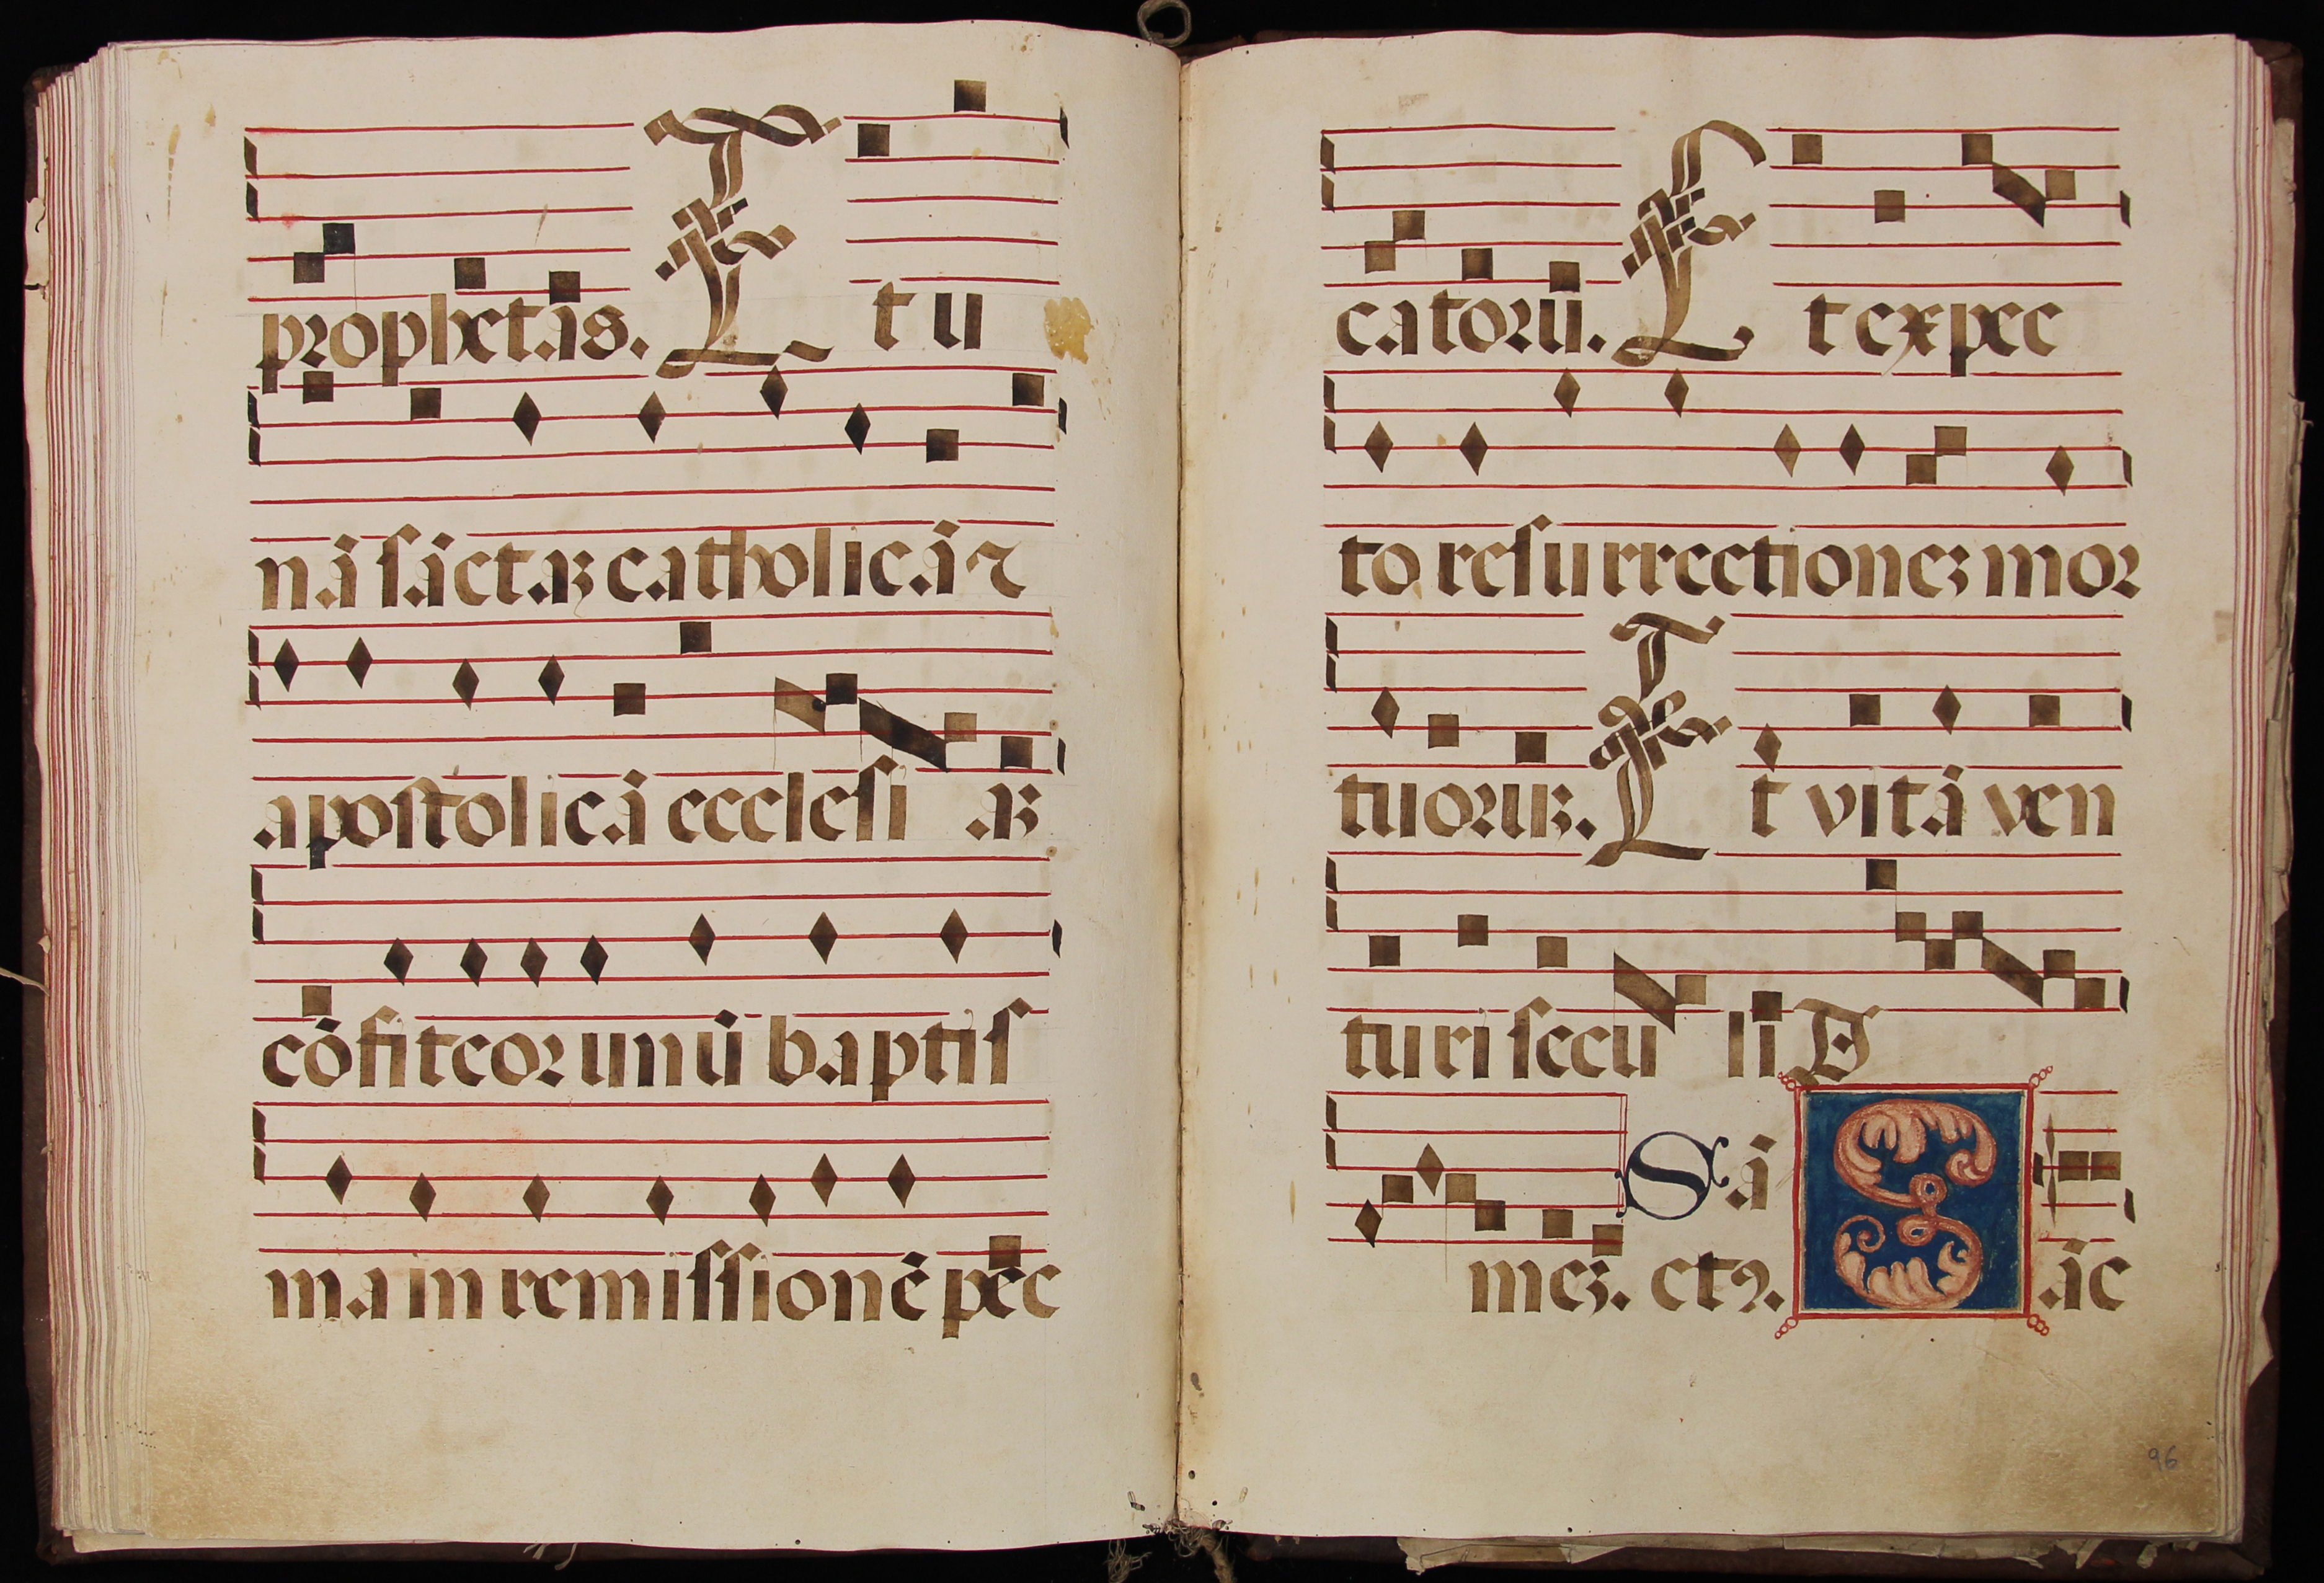 prophetas. Et u
nā sāctaʒ catholicā ⁊
apostolicā ecclesi aʒ
cōfiteor unū baptis
ma in remissionē pec
catorū. Et expec
to resurrectioneʒ mor
tuoruʒ. Et vitā ven
turi seculi A
meʒ. etꝰ. Sā Sāc
96